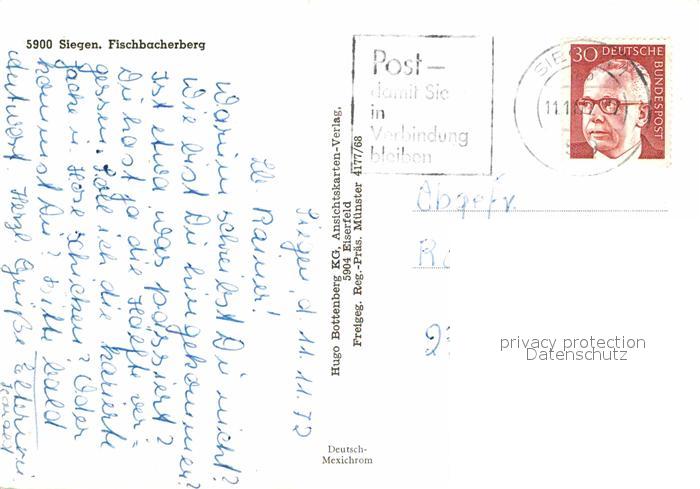 5900 Siegen. Fischbacherberg
Siegen, d 11.11.72
Lb. Rainer!
Warum schreibst Du nicht?
Wie bist Du hingekommen?
Ist etwa was passiert?
Du hast ja die Hälfte ver=
gessen. Soll ich die karierte
Jacke u. Hose schicken? Oder
kommst Du? Bitte bald
Antwort. Herzl. Grüße
Hugo Bottenberg KG, Ansichtskarten-Verlag,
5904 Eiserfeld
Freigeg. Reg.-Präs. Münster 4177/68
Deutsch-
Mexichrom
Post–
damit Sie
in
Verbindung
bleiben
SIE
11.11
30 DEUTSCHE
BUNDESPOST
Abgefr.
R
2
privacy protection
Datenschutz